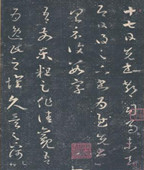 十七日先書郗司馬未去
即日得足下書為慰先書以
具示復數字
吾前東粗足作佳觀
吾為逸民之懷久矣足下何